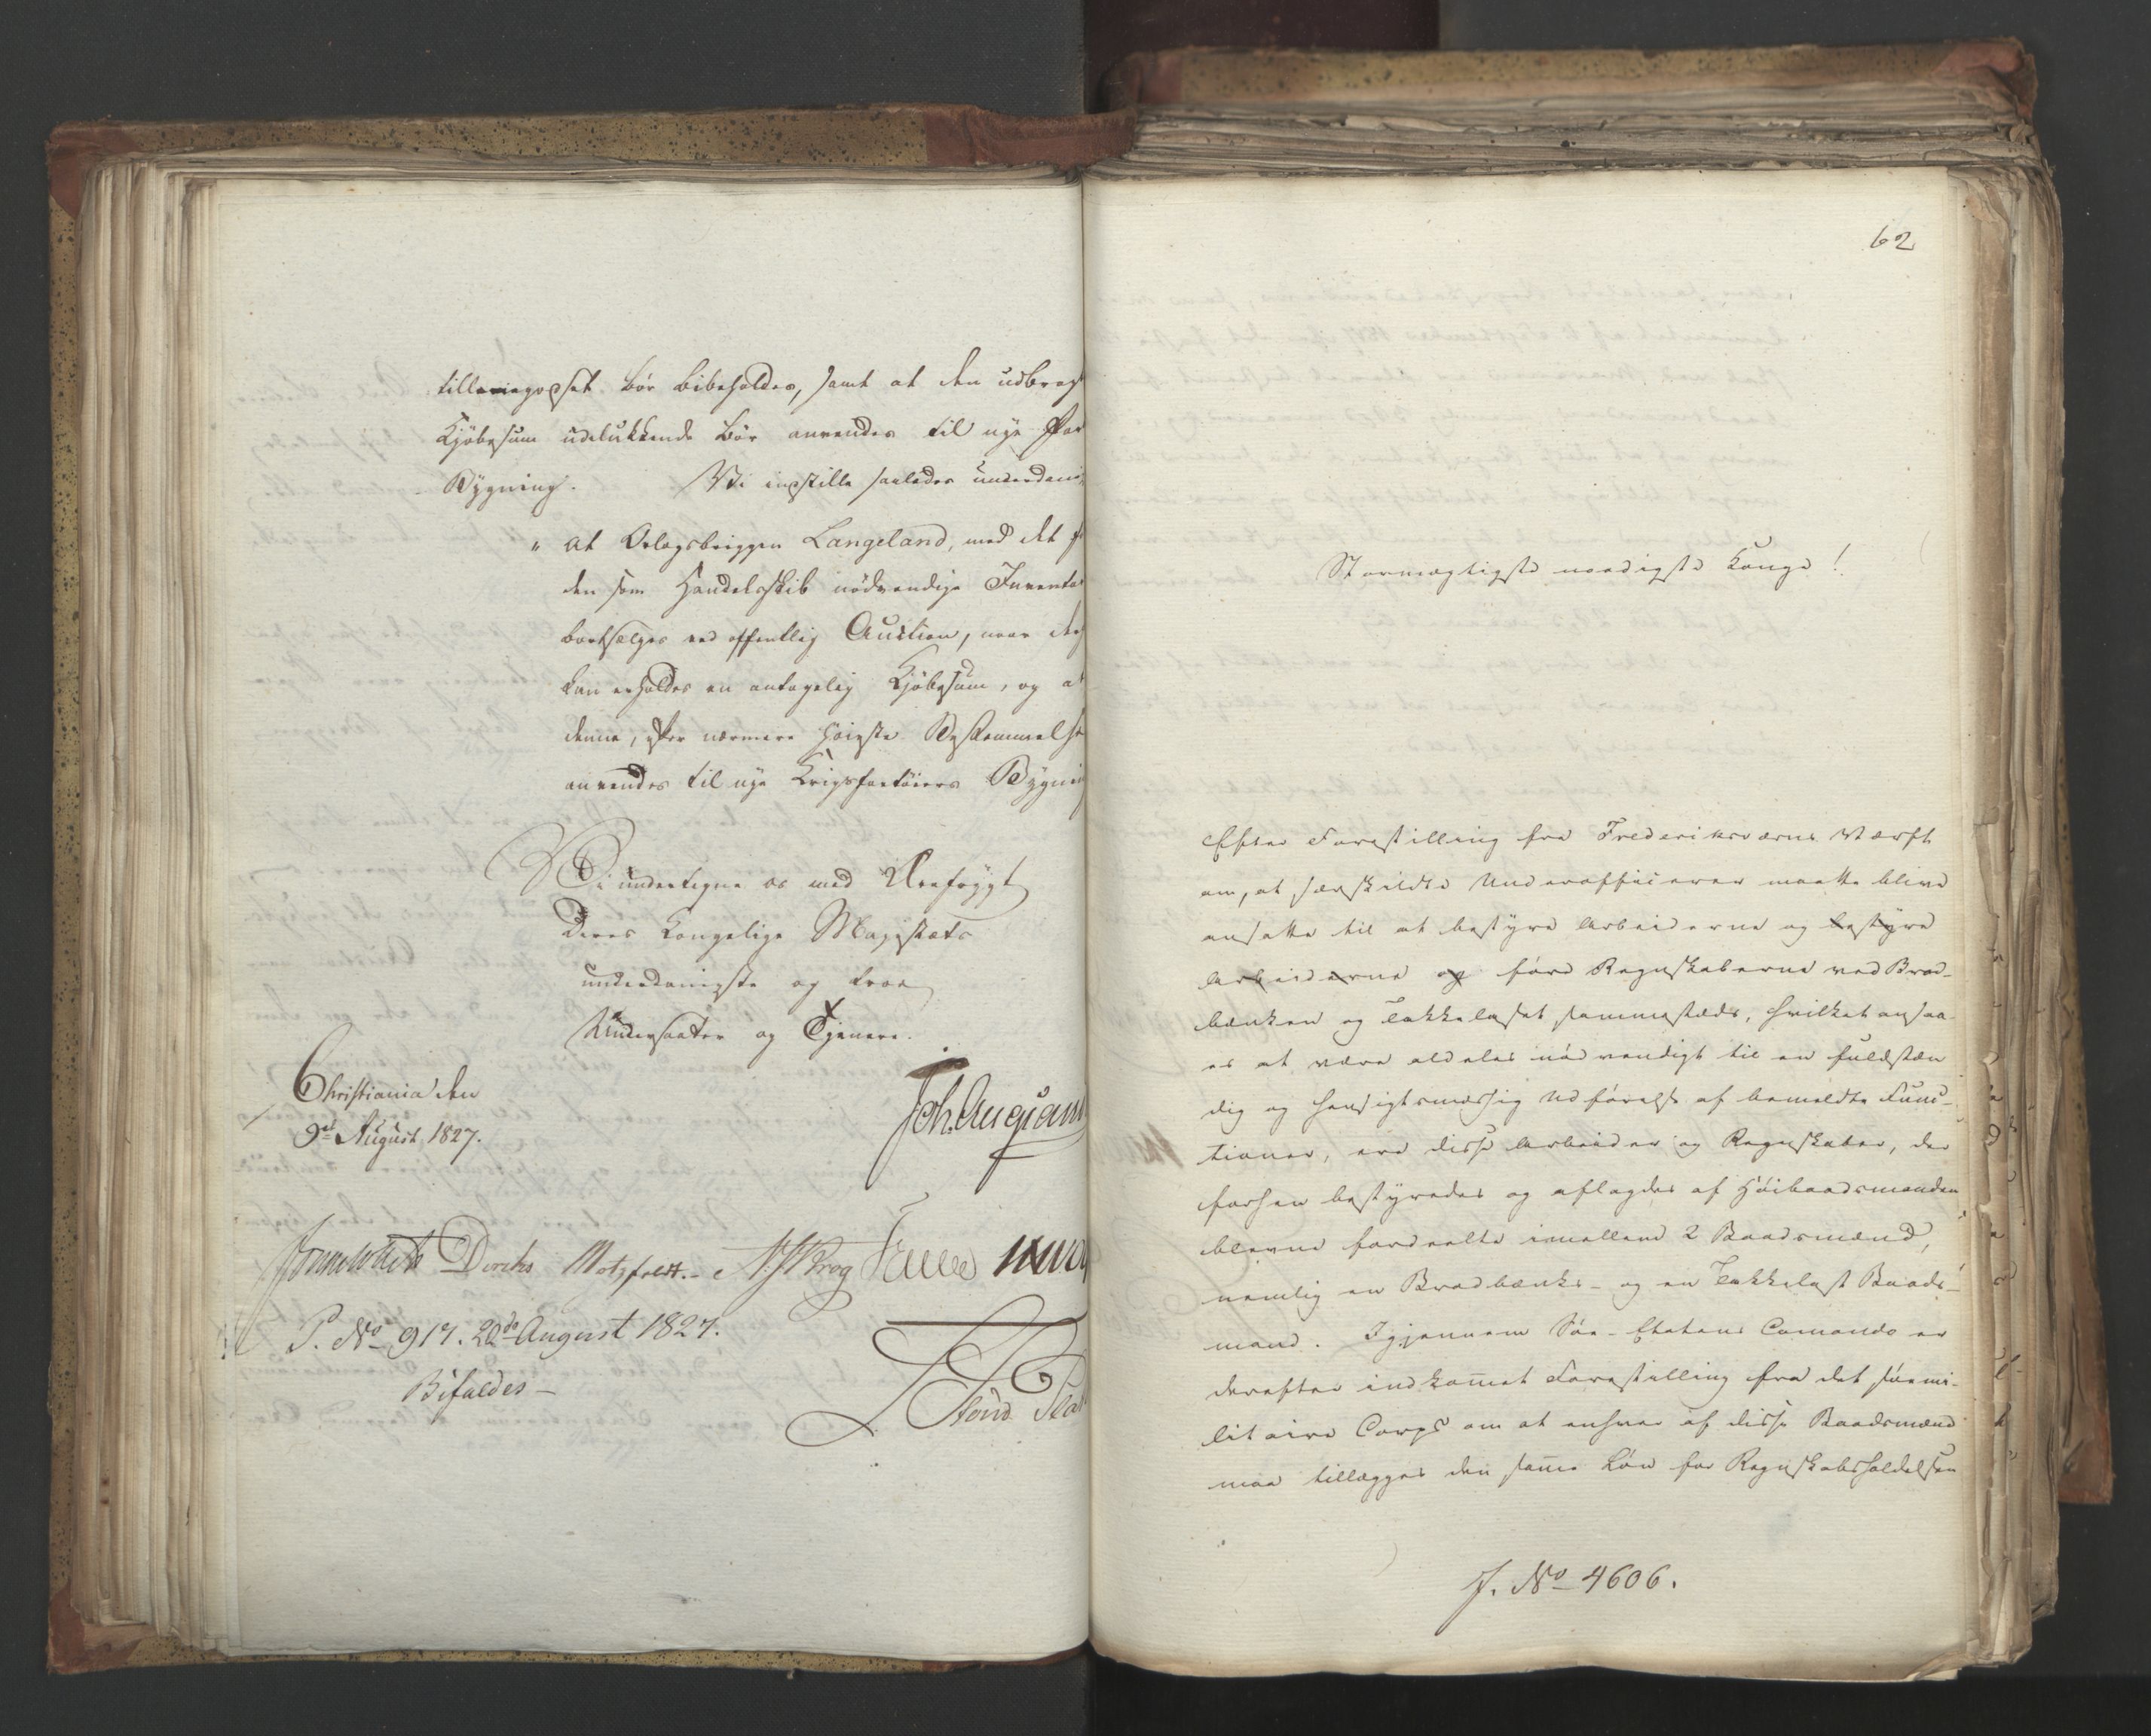 tilleriegodset bør bibeholdes, samt at den udbragt
Kjøbesum udelukkende bør anvendes til nye Far
Bygning. Vi indstille saaledes underdani
" at Orlogsbriggen Langeland, med det f
den som Handelsskib nødvendige Inventa
bortsælges ved offentlig Auction, naar der
kan erholdes en antagelig Kjøbesum, og at
denne, efter nærmere høieste Bestemmelse
anvendes til nye Krigsfartøiers Bygnin
Vi undertegne os med Ærefrygt
Deres Kongelige Majestæts
underdanigste og troe
Undersaatter og Tjenere.
Christiania den
9de August 1827.
Joh. Aug. Sand
Diriks Motzfeldt. N. J. Krog
P. No 917. 20de August 1827.
Bifaldes —
62
Stormægtigste naadigste Konge!
Efter Forestilling fra Frederiksværns Værft
om, at særskildte Underofficierer maatte blive
ansatte til at bestyre Arbeiderne og bestyre
Arbeiderne og føre Regnskaberne ved Brad-
bænken og Takkeladset sammesteds, hvilket ansaa-
es at være aldeles nødvendigt til en fuldstæn
dig og hensigtsmæssig Udførelse af bemeldte Func-
tioner, ere disse Arbeider og Regnskaber, der
forhen bestyredes og aflagdes af Høibaadsmanden
blevne fordeelte imellem 2 Baadsmænd,
nemlig en Bradbænks- og en Takkelads Baads-
mand. Igjennem Søe-Etatens Comando er
derefter indkom̅et Forestilling fra det søemi-
litaire Corps om at enhver af disse Baadsmænd
maa tillægges den sam̅e Løn for Regnskabsholdelsen
J. No 4606.